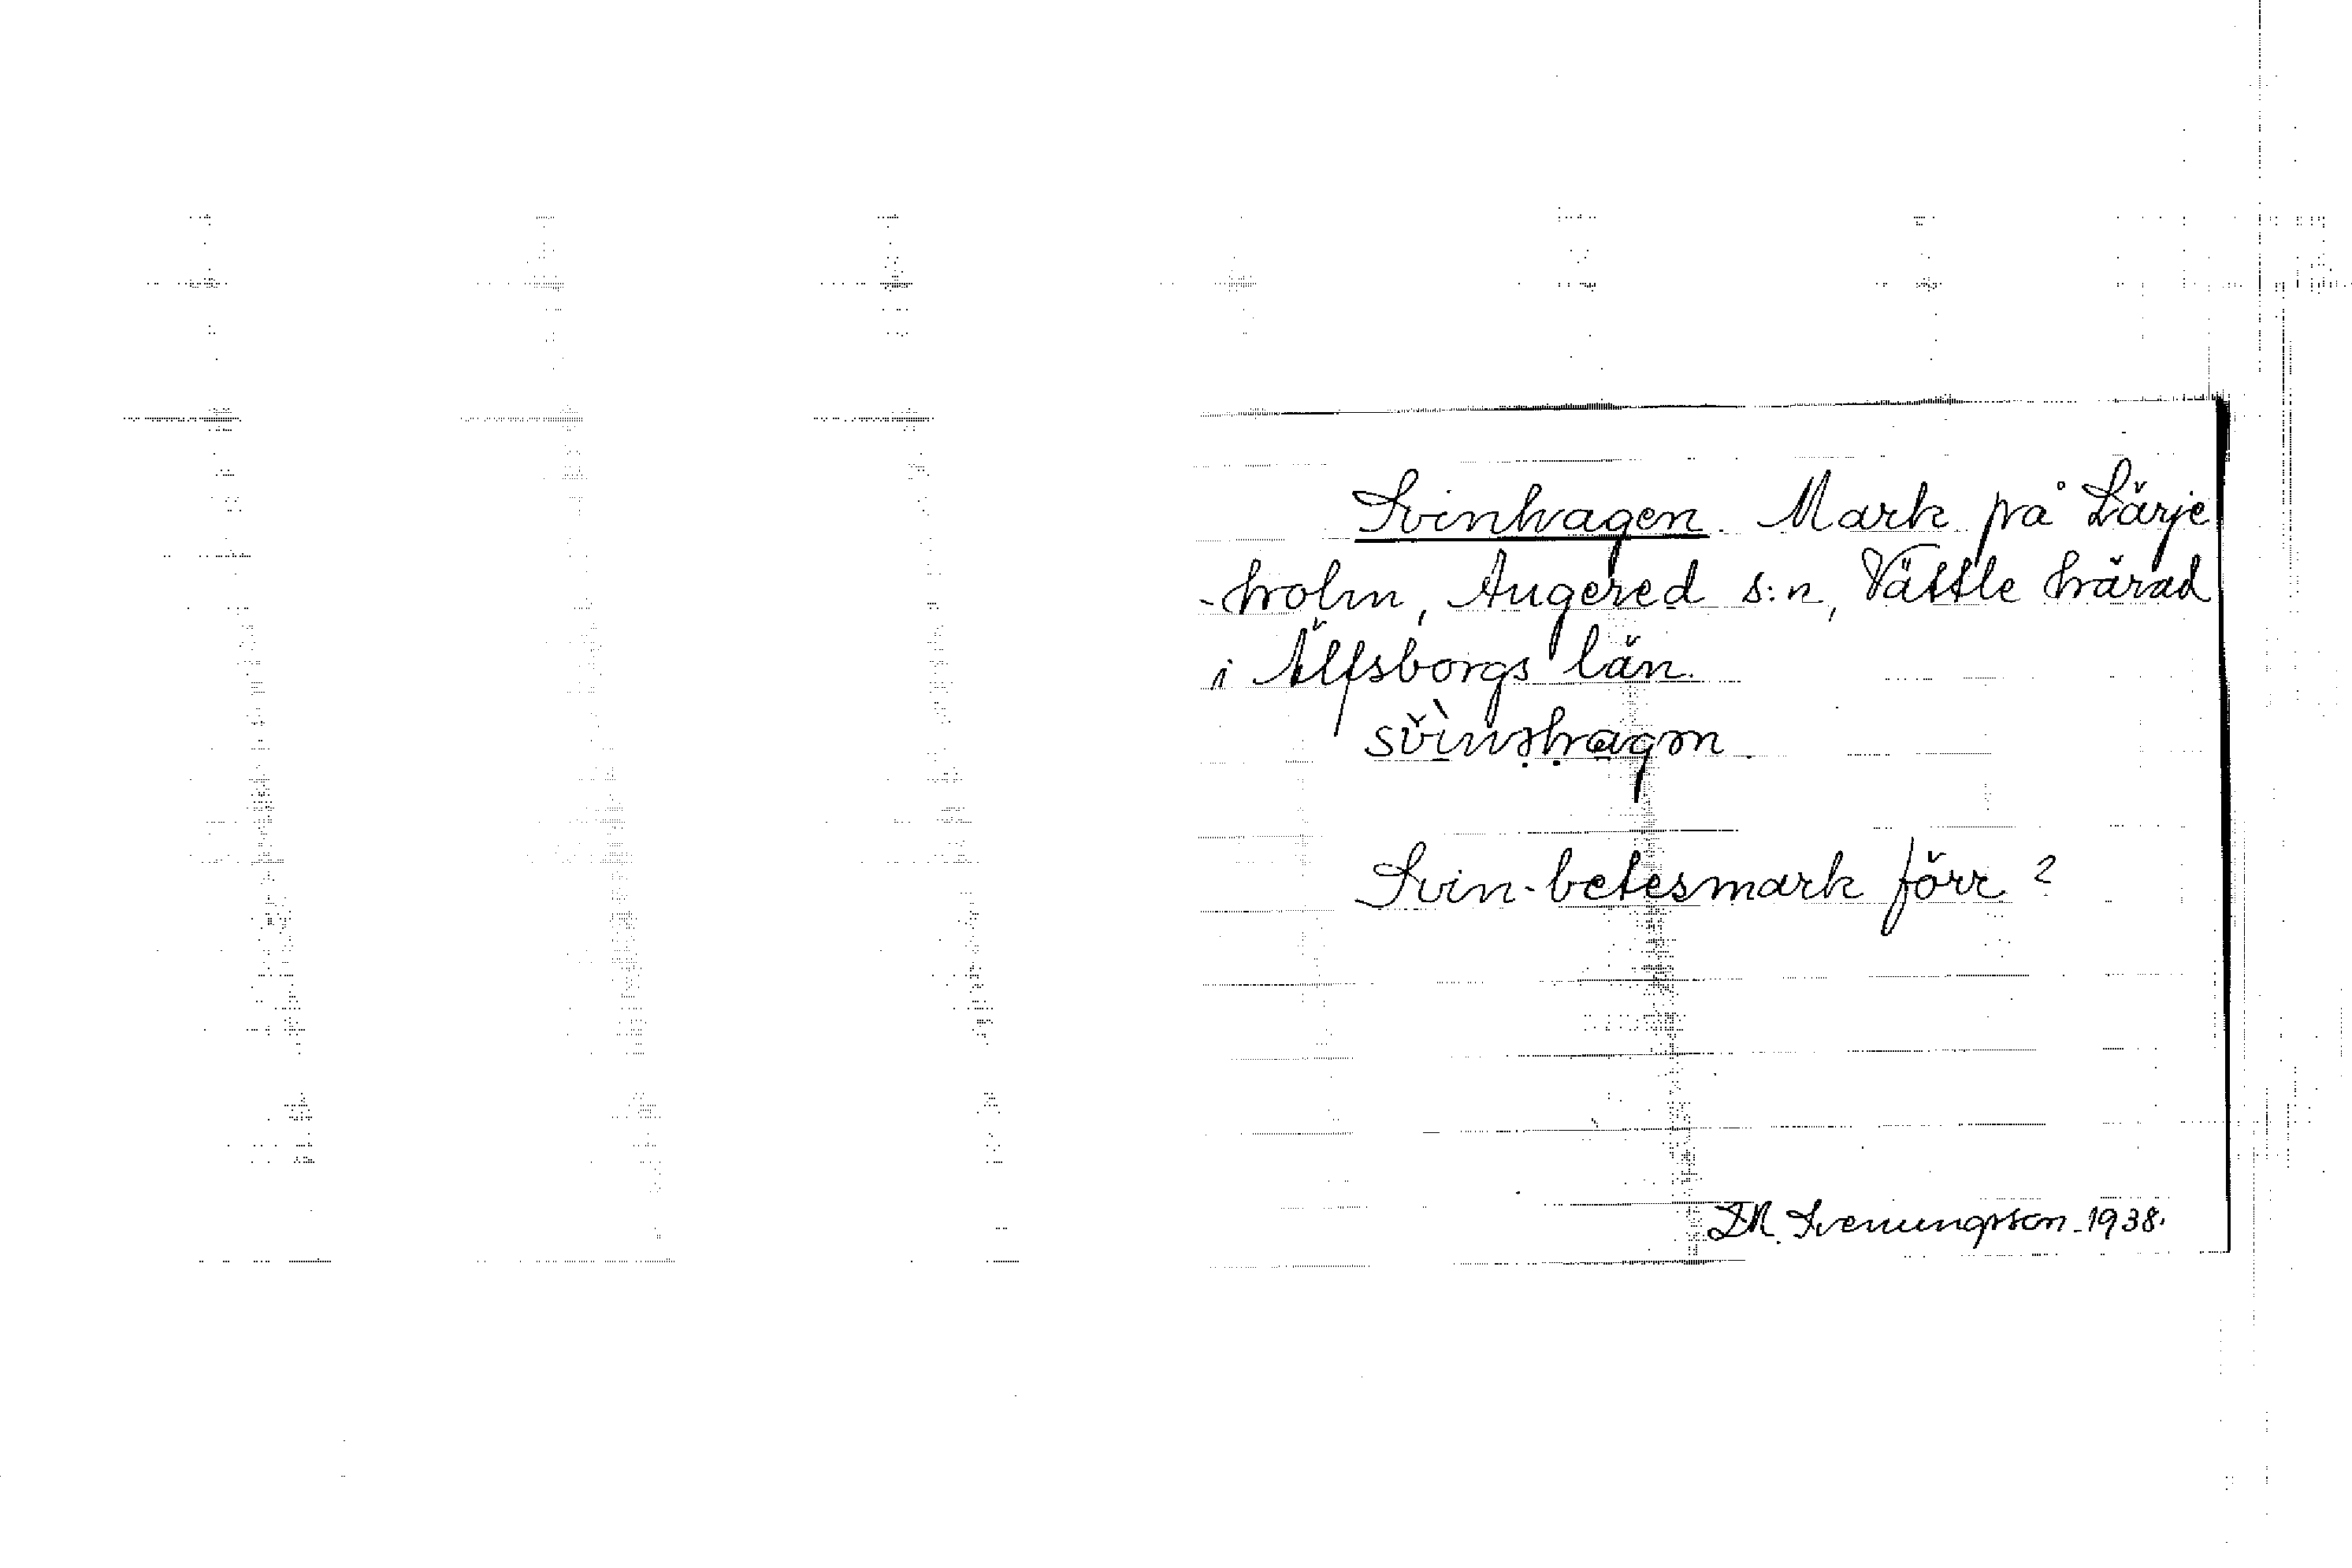 Svinhagen. Mark på Lärje
-holm, Angered s:n, Vättle härad
i Älfsborgs län.
Svin-betesmark förr?
Svenungsson 1938.